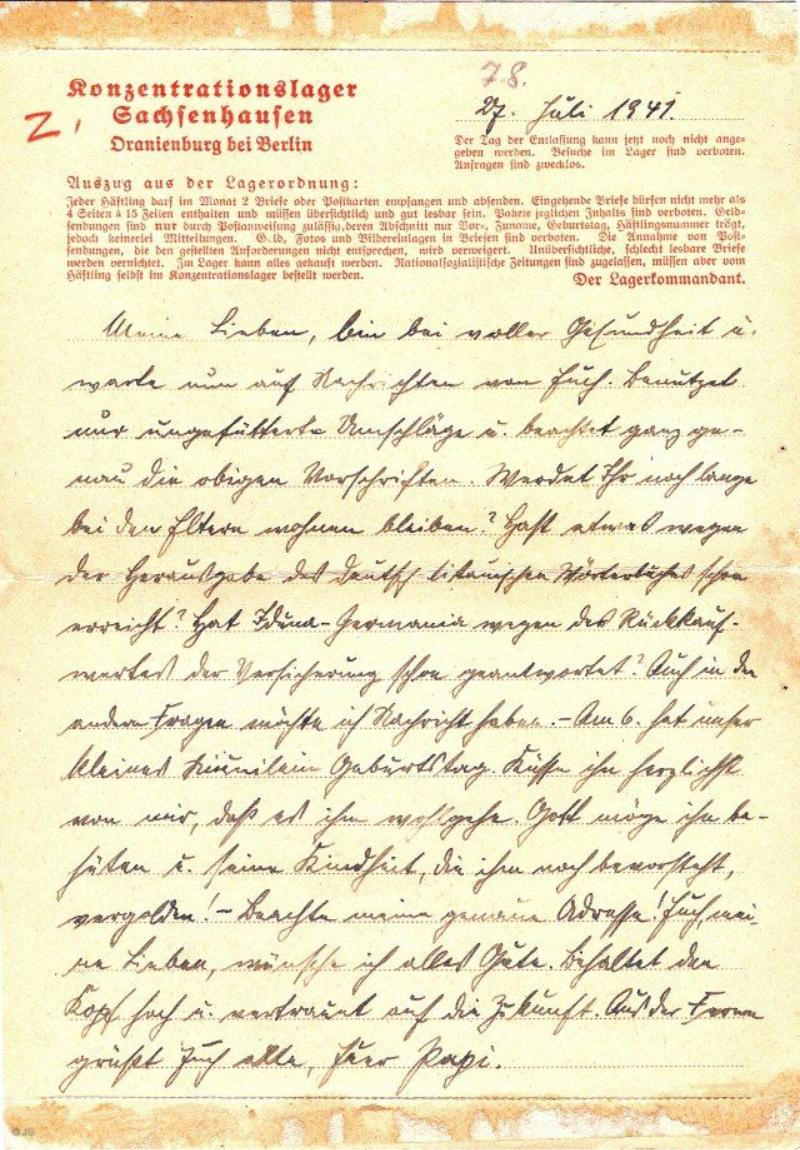 7.8.
Konzentrationslager
Sachsenhausen
Oranienburg bei Berlin
Z,
27. Juli 1941.
Der Tag der Entlassung kann jetzt noch nicht ange=
geben werden. Besuche im Lager sind verboten.
Anfragen sind zwecklos.
Auszug aus der Lagerordnung:
Jeder Häftling darf im Monat 2 Briefe oder Postkarten empfangen und absenden. Eingehende Briefe dürfen nicht mehr als
4 Seiten à 15 Zeilen enthalten und müssen übersichtlich und gut lesbar sein. Pakete jeglichen Inhalts sind verboten. Geld=
sendungen sind nur durch Postanweisung zulässig, deren Abschnitt nur Vor=, Zuname, Geburtstag, Häftlingsnummer trägt,
jedoch keinerlei Mitteilungen. Geld, Fotos und Bildereinlagen in Briefen sind verboten. Die Annahme von Post=
sendungen, die den gestellten Anforderungen nicht entsprechen, wird verweigert. Unübersichtliche, schlecht lesbare Briefe
werden vernichtet. Im Lager kann alles gekauft werden. Nationalsozialistische Zeitungen sind zugelassen, müssen aber vom
Häftling selbst im Konzentrationslager bestellt werden.
Der Lagerkommandant.
Meine Lieben, bin bei voller Gesundheit u.
warte nun auf Nachrichten von Euch. Benutzet
nur ungefütterte Umschläge u. beachtet ganz ge-
nau die obigen Vorschriften. Werdet Ihr noch lange
bei den Eltern wohnen bleiben? Hast etwas wegen
der Herausgabe des deutsch litauischen Wörterbuches schon
erreicht? Hat Iduna-Germania wegen des Rückkauf-
wertes der Versicherung schon geantwortet? Auch in den
andern Fragen möchte ich Nachricht haben. - Am 6. hat unser
kleines Geburtstag. Küsse ihn herzlichst
von mir, daß es ihm wohlgehe. Gott möge ihn be-
hüten u. seine Kindheit, die ihm noch bevorsteht,
vergolden! - Beachte meine genaue Adresse! Euch, mei-
ne Lieben, wünsche ich alles Gute. Behaltet den
Kopf hoch u. vertraut auf die Zukunft. Aus der Ferne
grüßt Euch alle, Euer Papi.